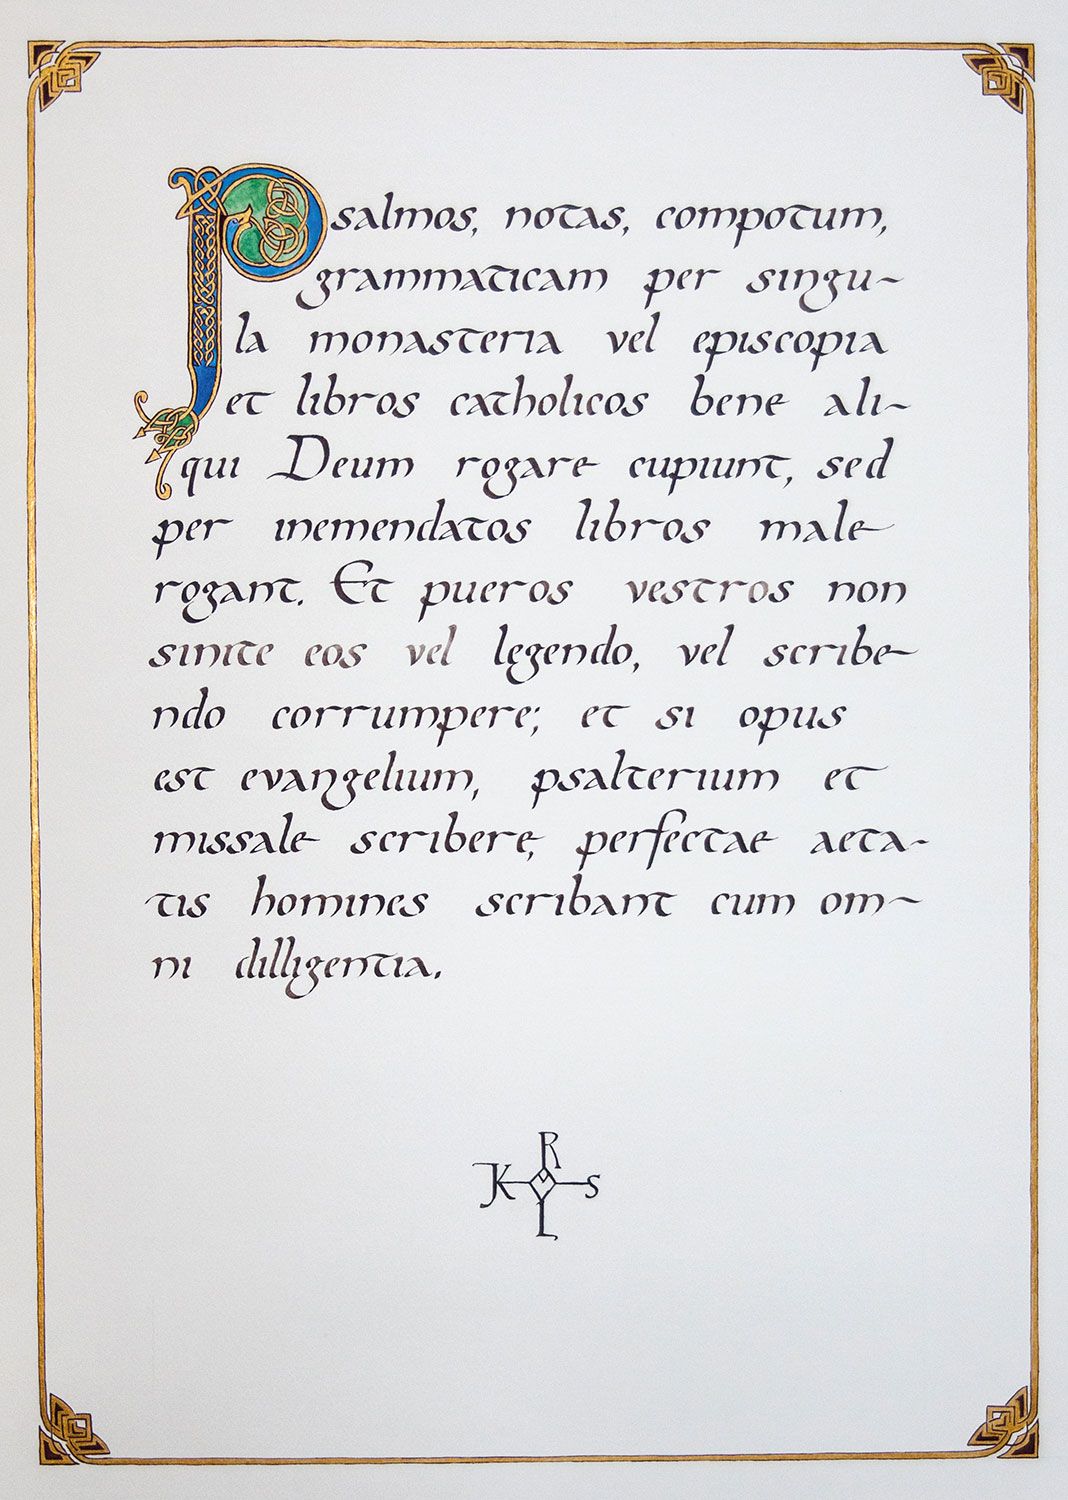 Psalmos, notas, compotum,
grammaticam per singu-
la monasteria vel episcopia
et libros catholicos bene ali-
qui Deum rogare cupiunt, sed
per inemendatos libros male
rogant. Et pueros vestros non
sinite eos vel legendo, vel scribe-
ndo corrumpere; et si opus
est evangelium, psalterium et
missale scribere, perfectae aeta-
tis homines scribant cum om-
ni dilligentia.
R
K S
L